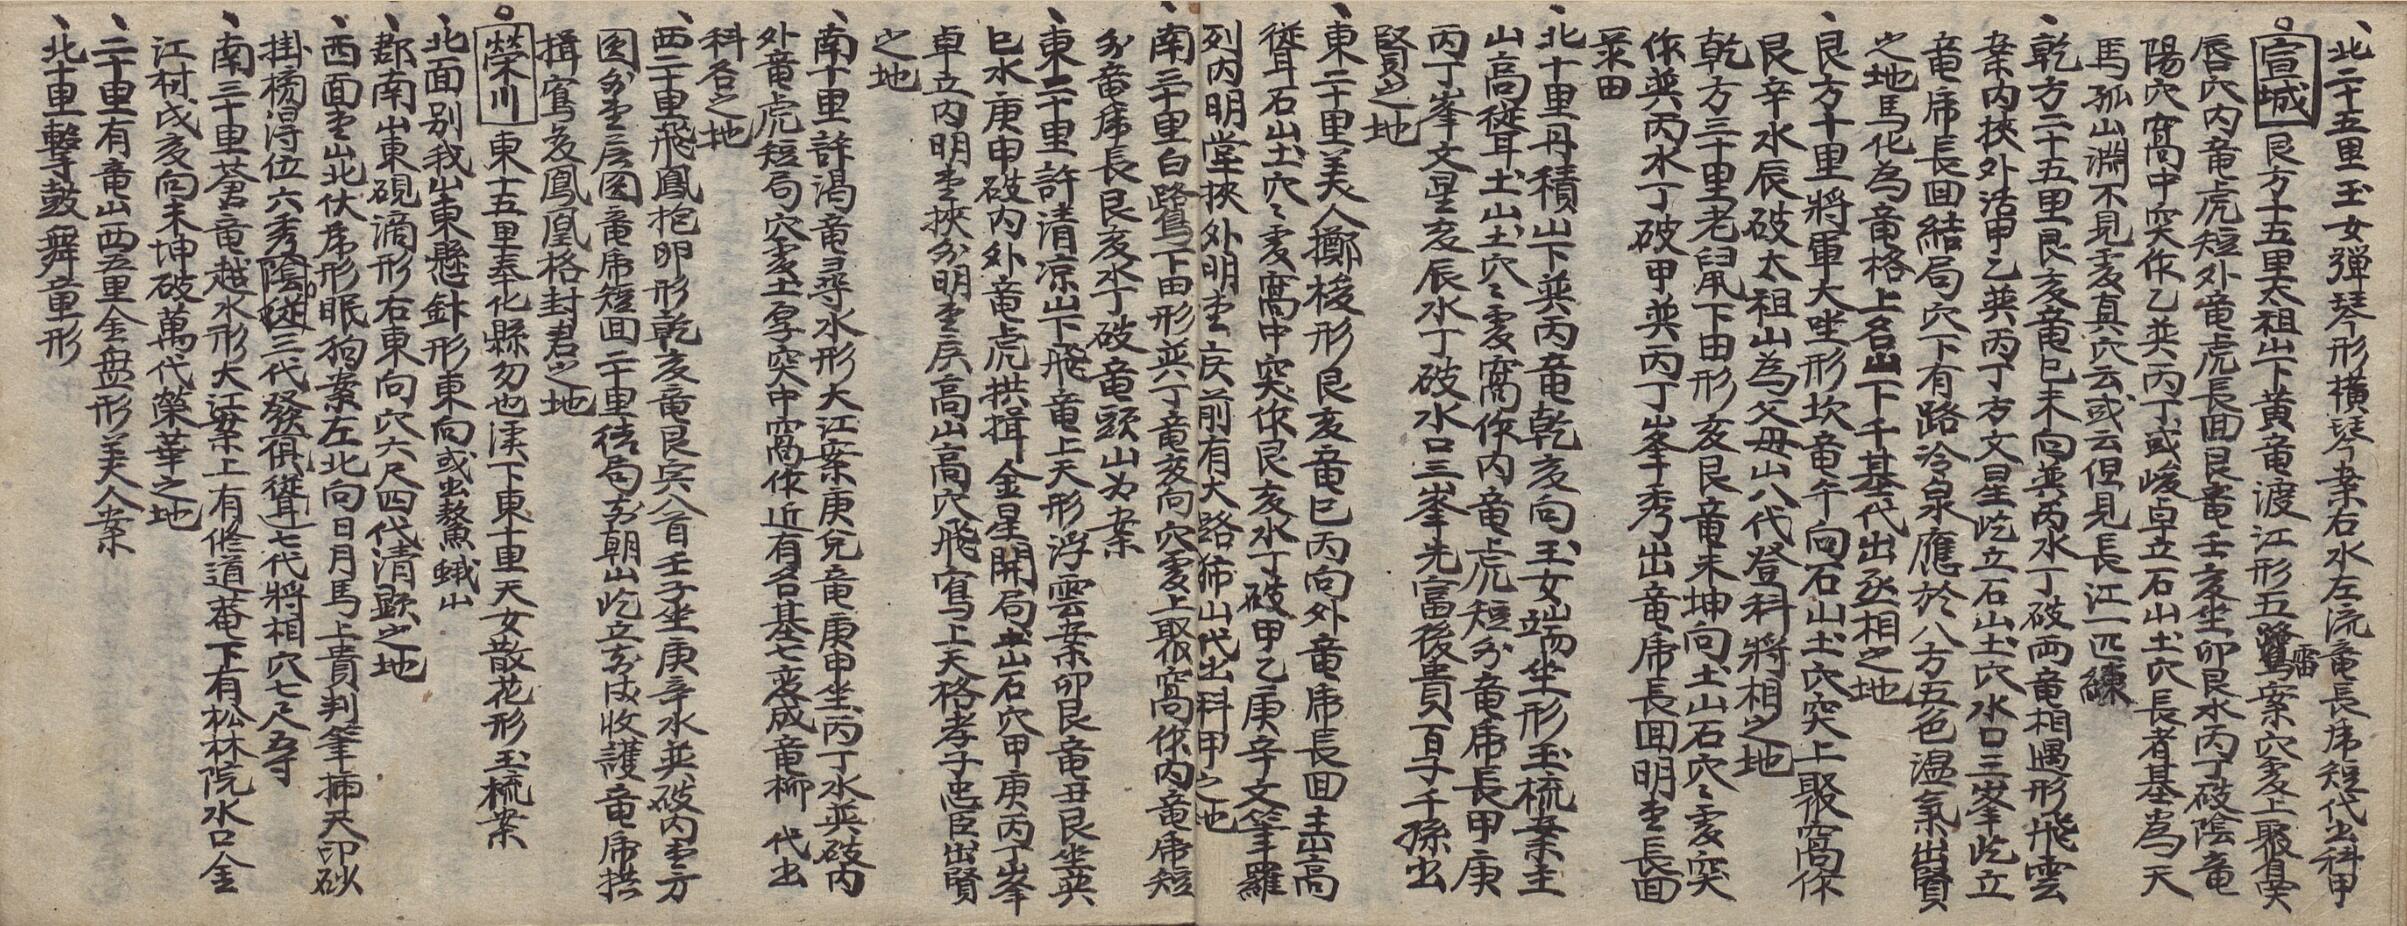 北二十五里玉女弹琴形橫琴案右水左流竜長席短代出科甲
宣城 艮方十五里太祖山下黃竜渡江形五鷺案穴處上聚有突
雷
唇穴內竜虎短外竜虎長回艮竜壬亥坐卯艮水丙丁破陰竜
陽穴窩中突作乙巽丙丁或峻卓立石山土穴長者基為天
馬孤山淵不見處真穴云或云但見長江一匹練
乾方二十五里艮亥竜巳未向巽丙水丁破両竜相遇形飛雲
案內挾外活甲乙巽丙丁方文星屹立石山土穴水口三峯屹立
竜席長回結局穴下有路冷泉應於八方五色温氣出賢
之地馬化為竜格上名山下千基代出丞相之地
艮方十里將軍大坐形坎竜午向石山土穴突上聚窩作
艮辛水辰破太祖山為父母山八代登科將相之地
乾方三十里老鼠下田形亥艮竜未坤向土山石穴〻處突
作巽丙水丁破甲巽丙丁峯秀出竜席長回明堂長回
案田
北十里丹積山下巽丙竜乾亥向玉女端坐形玉梳案主
山高從耳土山土穴〻處窩作內竜虎短外竜席長甲庚
丙丁峯文星亥辰水丁破水口三峯先富後貴百子千孫出
賢之地
東二十里美人擲梭形艮亥竜巳丙向外竜席長回主山高
從耳石山土穴〻處窩中突作艮亥水丁破甲乙庚辛文筆羅
列內明堂挾外明堂庆前有大路獅山代出科甲之地
南三十里白鷺下田形巽丁竜亥向穴處上聚窩作內竜席短
外竜席長艮亥水丁破竜頭山为案
東三十里許清凉山下飛竜上天形浮雲案卯艮竜丑艮坐巽
巳水庚申破內外竜虎拱揖金星開局土山石穴甲庚丙丁峯
卓立內明堂挾外明堂庆高山高穴飛窩上天格孝子忠臣出賢
之地
南十里許渴竜尋水形大江案庚兌竜庚申坐丙丁水巽破內
外竜虎短局穴處土厚突中窩作近有名基七処成竜柳 代出
科名之地
西二十里飛鳳抱卵形乾亥竜艮宾八首壬子坐庚辛水巽破內堂方
圓外堂庆圓竜席短回二十里结局外朝山屹立外成收護竜席拱
揖窩処鳳凰格封君之地
榮川 東十五里奉化縣勿也溪下東十里天女散花形玉梳案
北面别我山東懸針形東向或出鰲魚蛾山
郡南山東硯滴形右東向穴六尺四代清顯之地
西面堂山北伏席形眠狗案左北向日月馬上貴判筆插天印砂
掛榜得位六秀陰從三代發俱從耳七代將相穴七尺五寸
南三十里蒼竜越水形大江案上有修道菴下有松林院水口金
江村戌亥向未坤破萬代榮華之地
二十里有竜山西五里金盤形美人案
北十里擊鼓舞童形